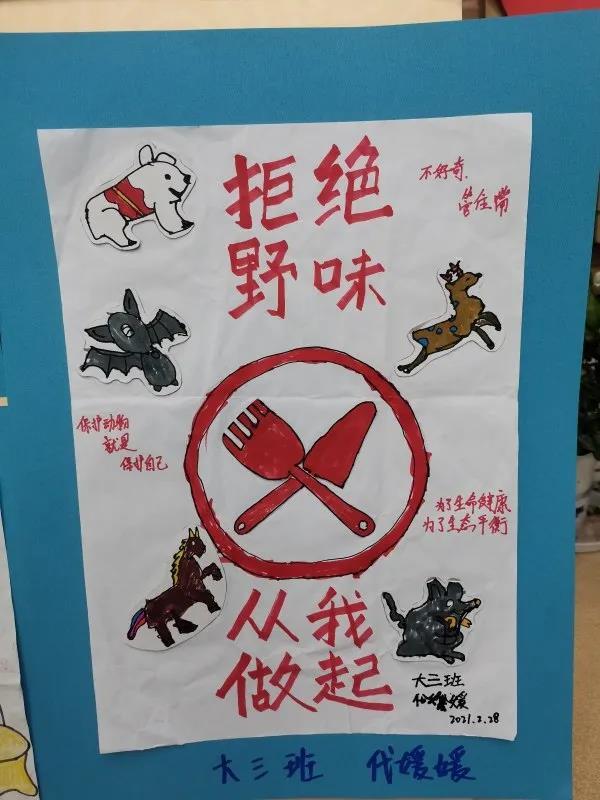 拒绝
野味
不好奇、
管住嘴
保护动物
就是
保护自己
为了生命健康
为了生态平衡
从我
做起
大三班
代媛媛
2021.2.28
大三班 代媛媛